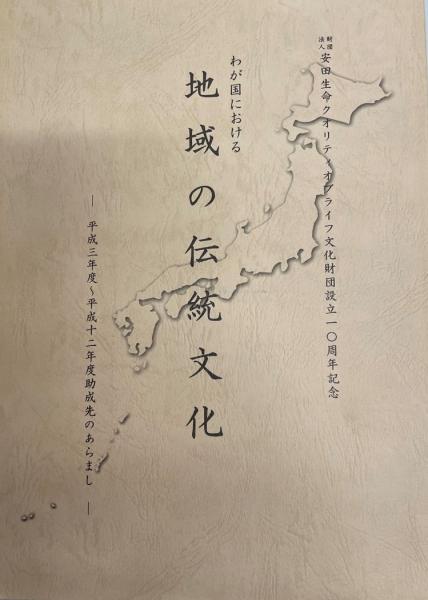 財団法人 安田生命クオリティオブライフ文化財団設立一〇周年記念
わが国における
地域の伝統文化
― 平成三年度~平成十二年度助成先のあらまし ―